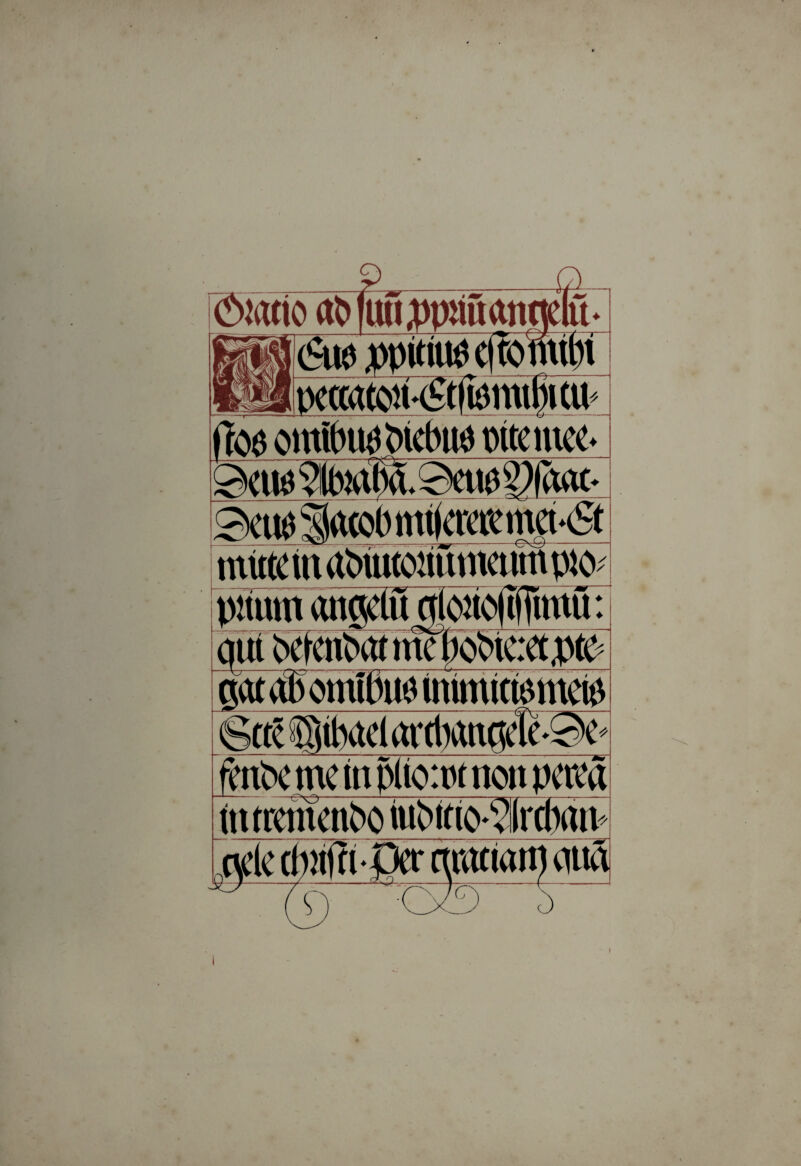 Oratio ad suũ ꝓpriũ angelũ.
Deus ꝓpitius esto mihi
peccatori. Et sis mihi cu⸗
stos omibus diebus vite mee.
Deus Abrahã. Deus Ysaac.
Deus Jacob miserere mei. Et
mitte in adiutoriũ meum pro⸗
prium angelũ gloriosissimũ:
qui defendat me hodie: et ꝓte⸗
gat ab omibus inimicis meis
Scte Michael archangele. De⸗
fende me in plio: vt non pereã
in tremendo iudicio. Archan⸗
gele christi. Per gratiam quã